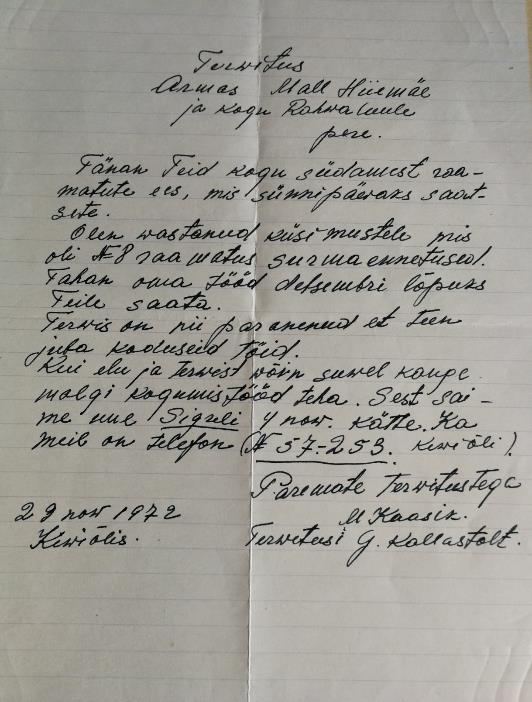 Terwitus
Armas Mall Hiiemäe
ja kogu Rahwaluule
pere.
Tänan Teid kogu südamest raa-
matute ees, mis sünnipäewaks saat-
site.
Olen wastanud küsimustele mis
oli N8 raamatus surmaennetused.
Tahan oma tööd detsembri lõpuks
Teile saata.
Terwis on nii paranenud et teen
juba koduseid töid.
Kui elu ja terwist wõin suwel kauge
malgi kogumistööd teha. Sest sai-
me uue Siguli 4 now. kätte. Ka
meil on telefon (N 57-253. Kiwiõli).
Paremate terwitustega
29 now 1972 M Kaasik.
Kiwiõlis. Terwitusi G. Kallastolt.